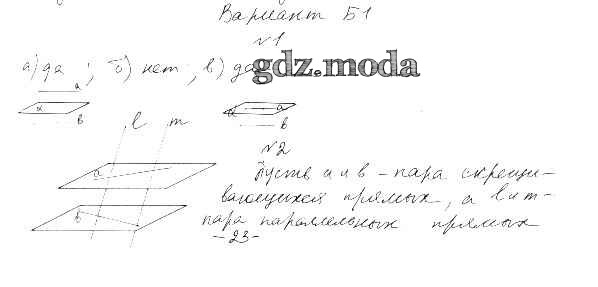 Вариант Б1
№1
а) да ; б) нет ; в) да
gdz.moda
a
α
в
a
α
в
l m
№2
a
Пусть а и в - пара скрещи-
вающихся прямых, а l и m -
в
пара параллельных прямых
- 23 -